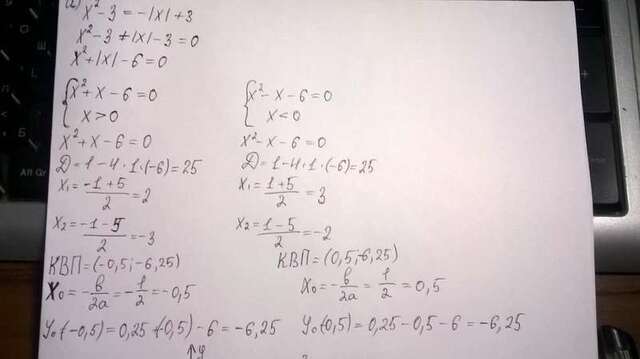 а) x² - 3 = -|x| + 3
x² - 3 + |x| - 3 = 0
x² + |x| - 6 = 0
{ x² + x - 6 = 0
x > 0
x² + x - 6 = 0
Д = 1 - 4 · 1 · (-6) = 25
x₁ = (-1 + 5)/2 = 2
x₂ = (-1 - 5)/2 = -3
КВП = (-0,5; -6,25)
x₀ = -в/2а = -1/2 = -0,5
y₀(-0,5) = 0,25 + (-0,5) - 6 = -6,25
{ x² - x - 6 = 0
x < 0
x² - x - 6 = 0
Д = 1 - 4 · 1 · (-6) = 25
x₁ = (1 + 5)/2 = 3
x₂ = (1 - 5)/2 = -2
КВП = (0,5; -6,25)
x₀ = -в/2а = 1/2 = 0,5
y₀(0,5) = 0,25 - 0,5 - 6 = -6,25
↑y
Alt Gr